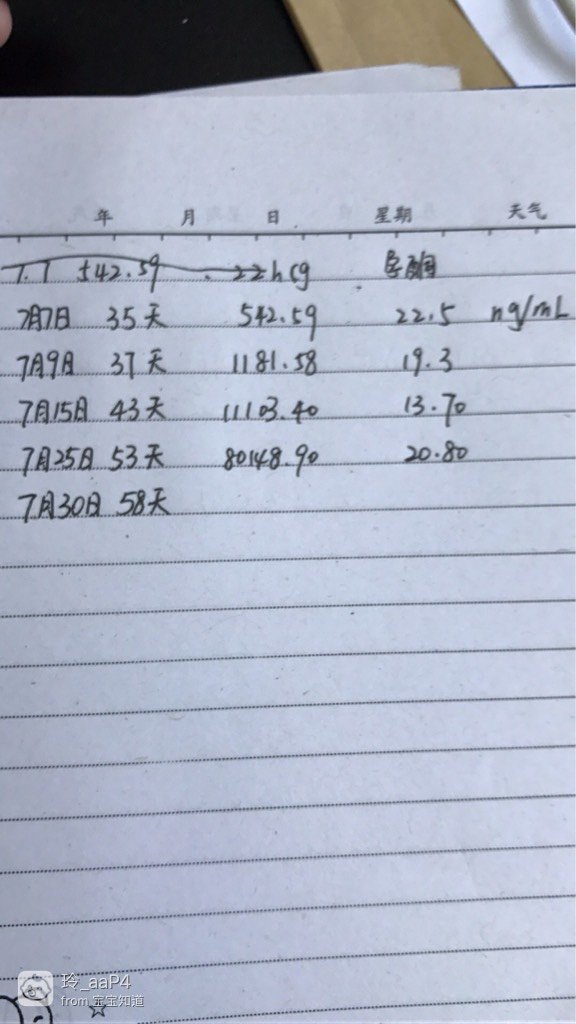 年 月 日 星期 天气
7.7 542.59 22hcg 孕酮
7月7日 35天 542.59 22.5 ng/mL
7月9日 37天 1181.58 19.3
7月15日 43天 11103.40 13.70
7月25日 53天 80148.90 20.80
7月30日 58天
玲_aaP4
from 宝宝知道